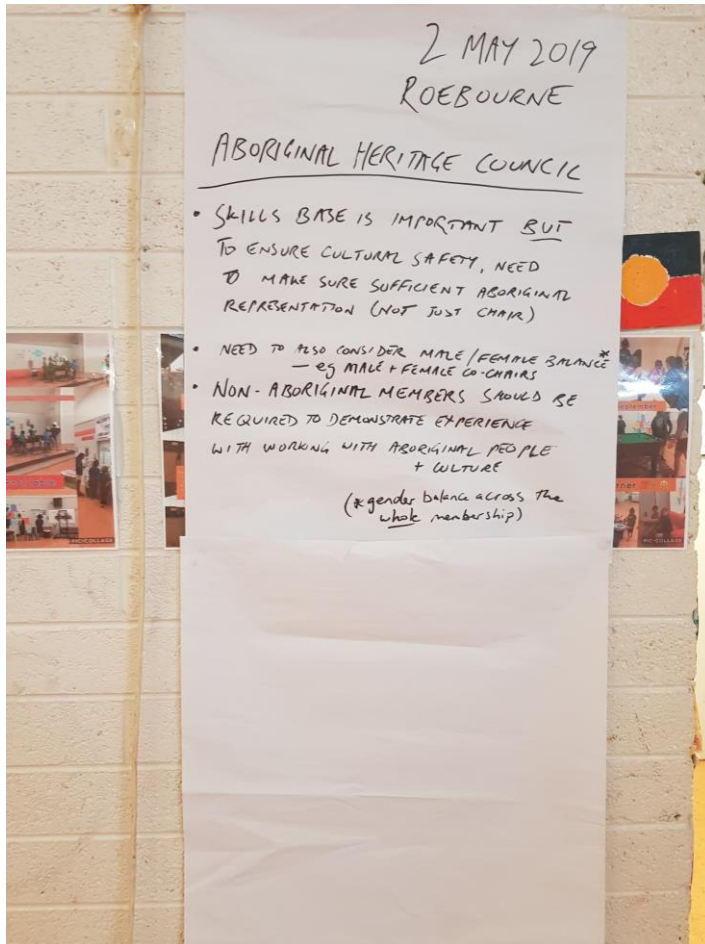 2 MAY 2019
ROEBOURNE
ABORIGINAL HERITAGE COUNCIL
• SKILLS BASE IS IMPORTANT BUT
TO ENSURE CULTURAL SAFETY, NEED
TO MAKE SURE SUFFICIENT ABORIGINAL
REPRESENTATION (NOT JUST CHAIR)
• NEED TO ALSO CONSIDER MALE/FEMALE BALANCE*
— eg MALE + FEMALE CO-CHAIRS
• NON-ABORIGINAL MEMBERS SHOULD BE
REQUIRED TO DEMONSTRATE EXPERIENCE
WITH WORKING WITH ABORIGINAL PEOPLE
+ CULTURE
(* gender balance across the
whole membership)
PIC•COLLAGE
PIC•COLLAGE